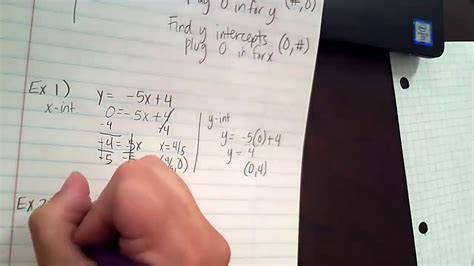 0 in for y (#,0)
Find y intercepts
plug 0 in for x (0,#)
Ex 1) y = -5x+4
x-int 0=-5x+4
-4 -4
-4=-5x x=4/5
-5 -5 (4/5,0)
y-int
y= -5(0)+4
y= 4
(0,4)
Ex